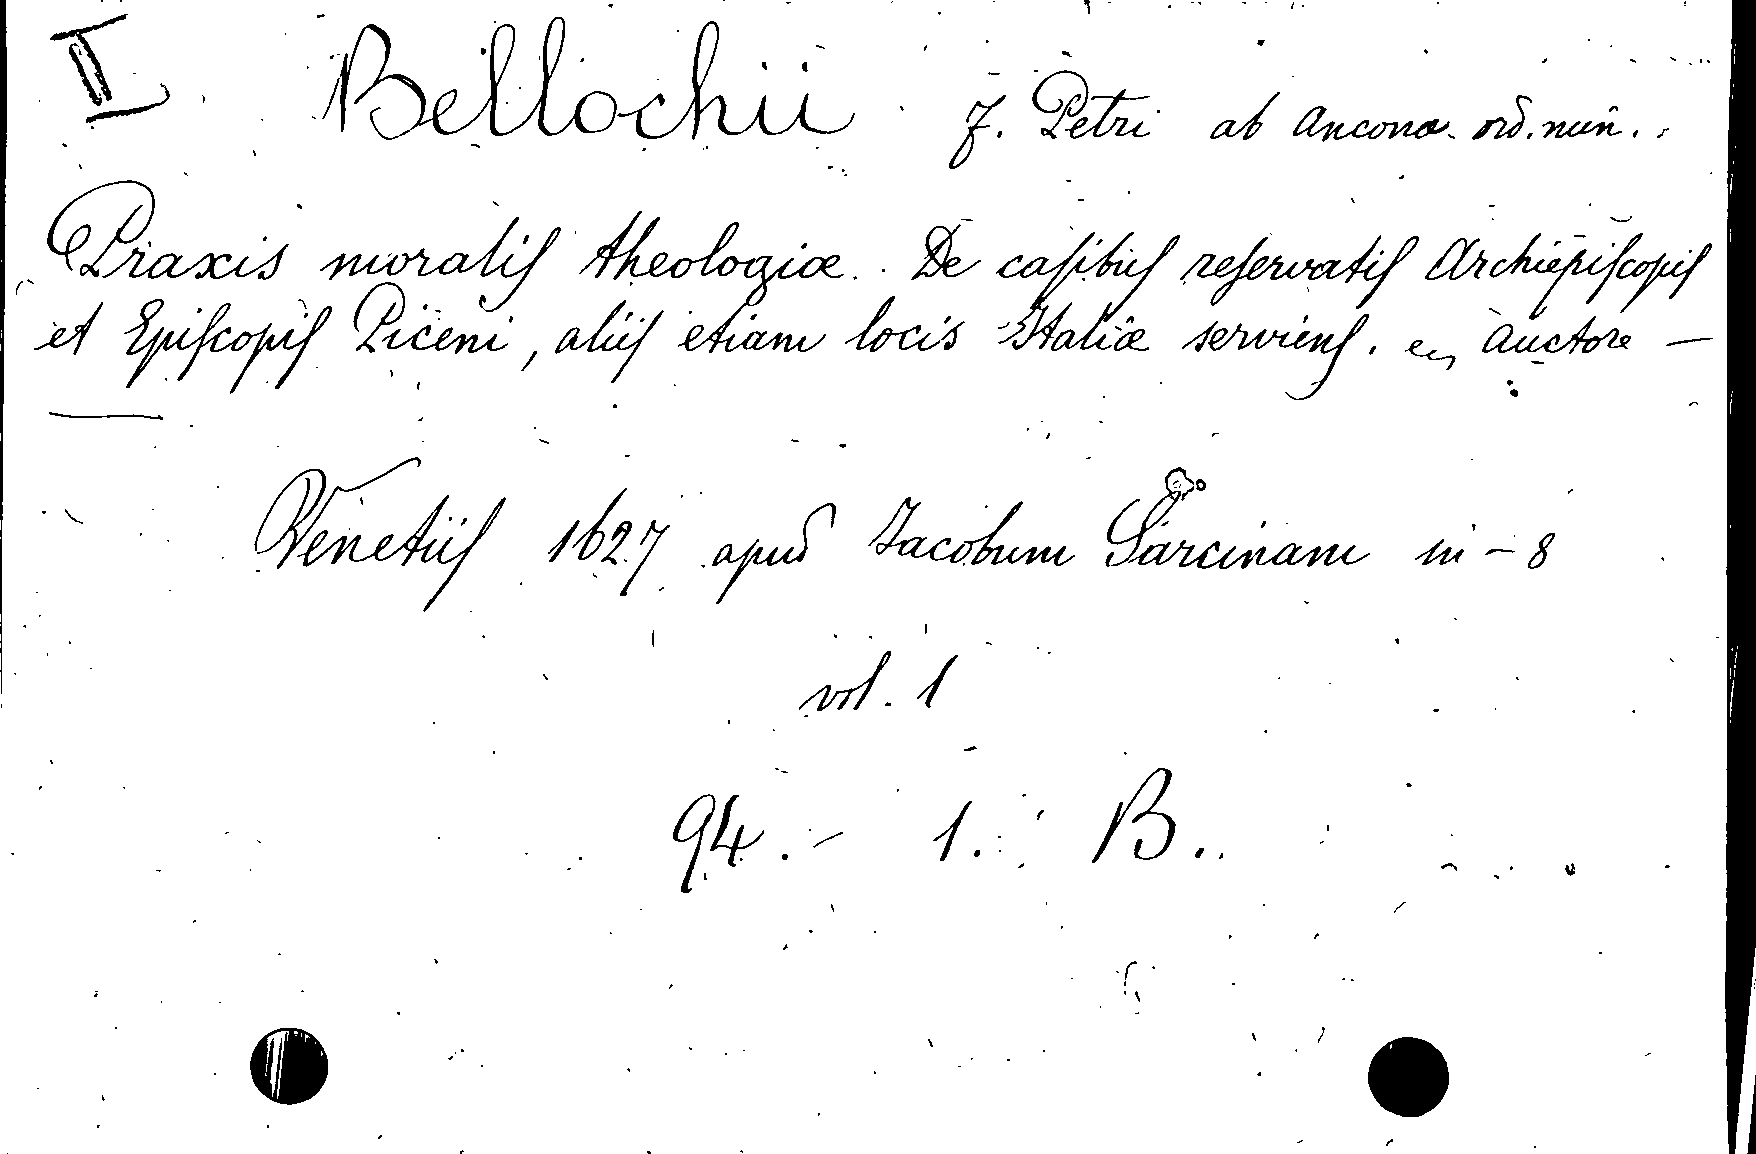 II Bellochii F. Petri ab Ancona ord. min.
Praxis moralis theologiæ. De casibus reservatis Archiepiscopis
et Episcopis Piceni, aliis etiam locis Italiæ serviens. Auctore —
—
Venetiis 1627 apud Jacobum Sarcinam in-8
vol. 1
94. - 1. B.